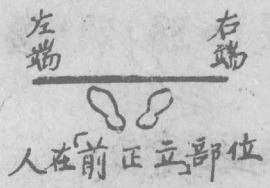 左端
右端
人在「前正立」部位